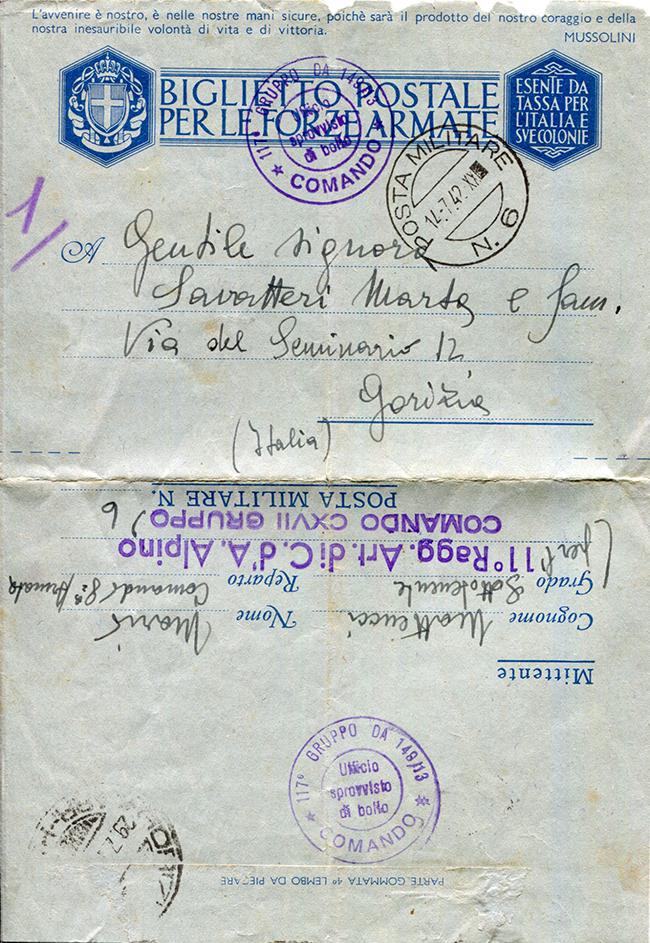 L'avvenire è nostro, è nelle nostre mani sicure, poichè sarà il prodotto del nostro coraggio e della
nostra inesauribile volontà di vita e di vittoria.
MUSSOLINI
BIGLIETTO POSTALE
PER LE FORZE ARMATE
ESENTE DA
TASSA PER
L'ITALIA E
SVE COLONIE
117° GRUPPO DA 149/13
Ufficio
sprovvisto
di bollo
COMANDO
POSTA MILITARE
14.7.42.XX
N. 6
1/
A Gentile Signora
Savatteri Marta e fam.
Via del Seminario 12
Gorizia
(Italia)
Mittente
Cognome Matteucci Nome Mario
Grado Sottotenente Reparto Comando 8ª Armata
(per l' 11° Ragg. Art. di C. d'A. Alpino
COMANDO CXVII GRUPPO)
POSTA MILITARE N. 6
117° GRUPPO DA 149/13
Ufficio
sprovvisto
di bollo
COMANDO
PARTE GOMMATA 4° LEMBO DA PIEGARE